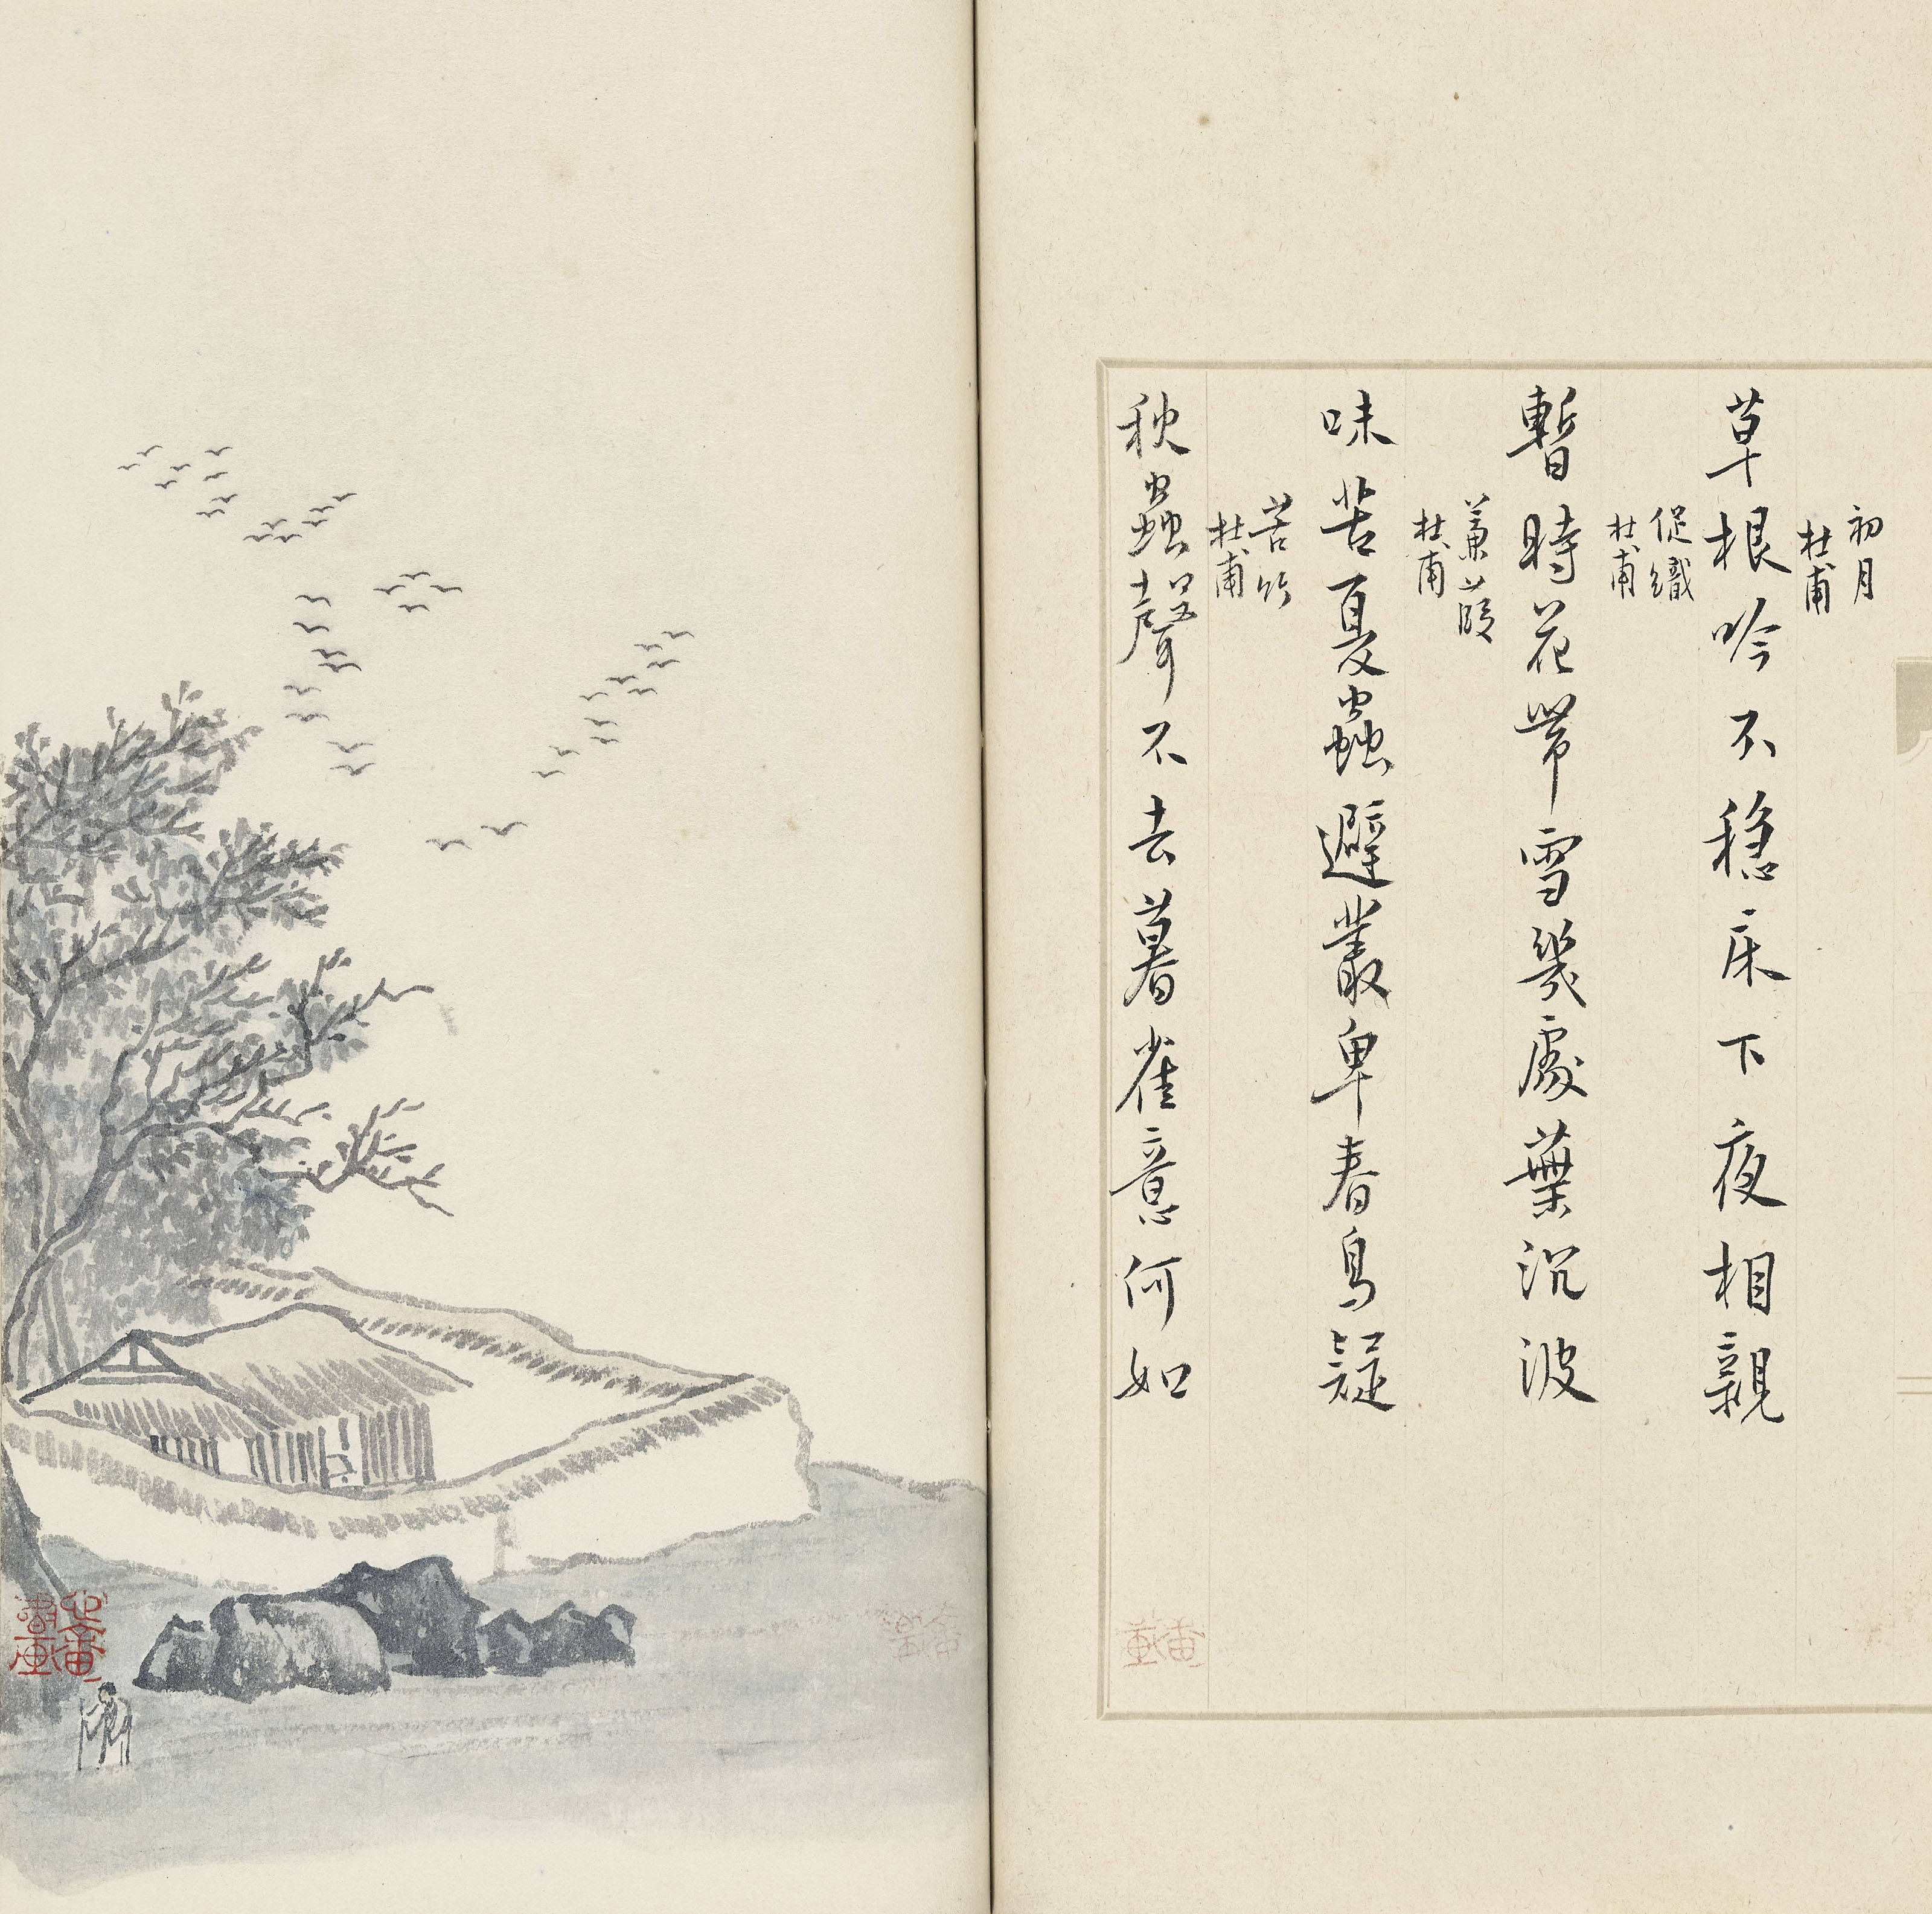 初月
杜甫
草根吟不穩床下夜相親
促織
杜甫
暫時花帶雪幾處葉沉波
蒹葭
杜甫
味苦夏蟲避叢卑春鳥疑
苦竹
杜甫
秋蟲聲不去暮雀意何如